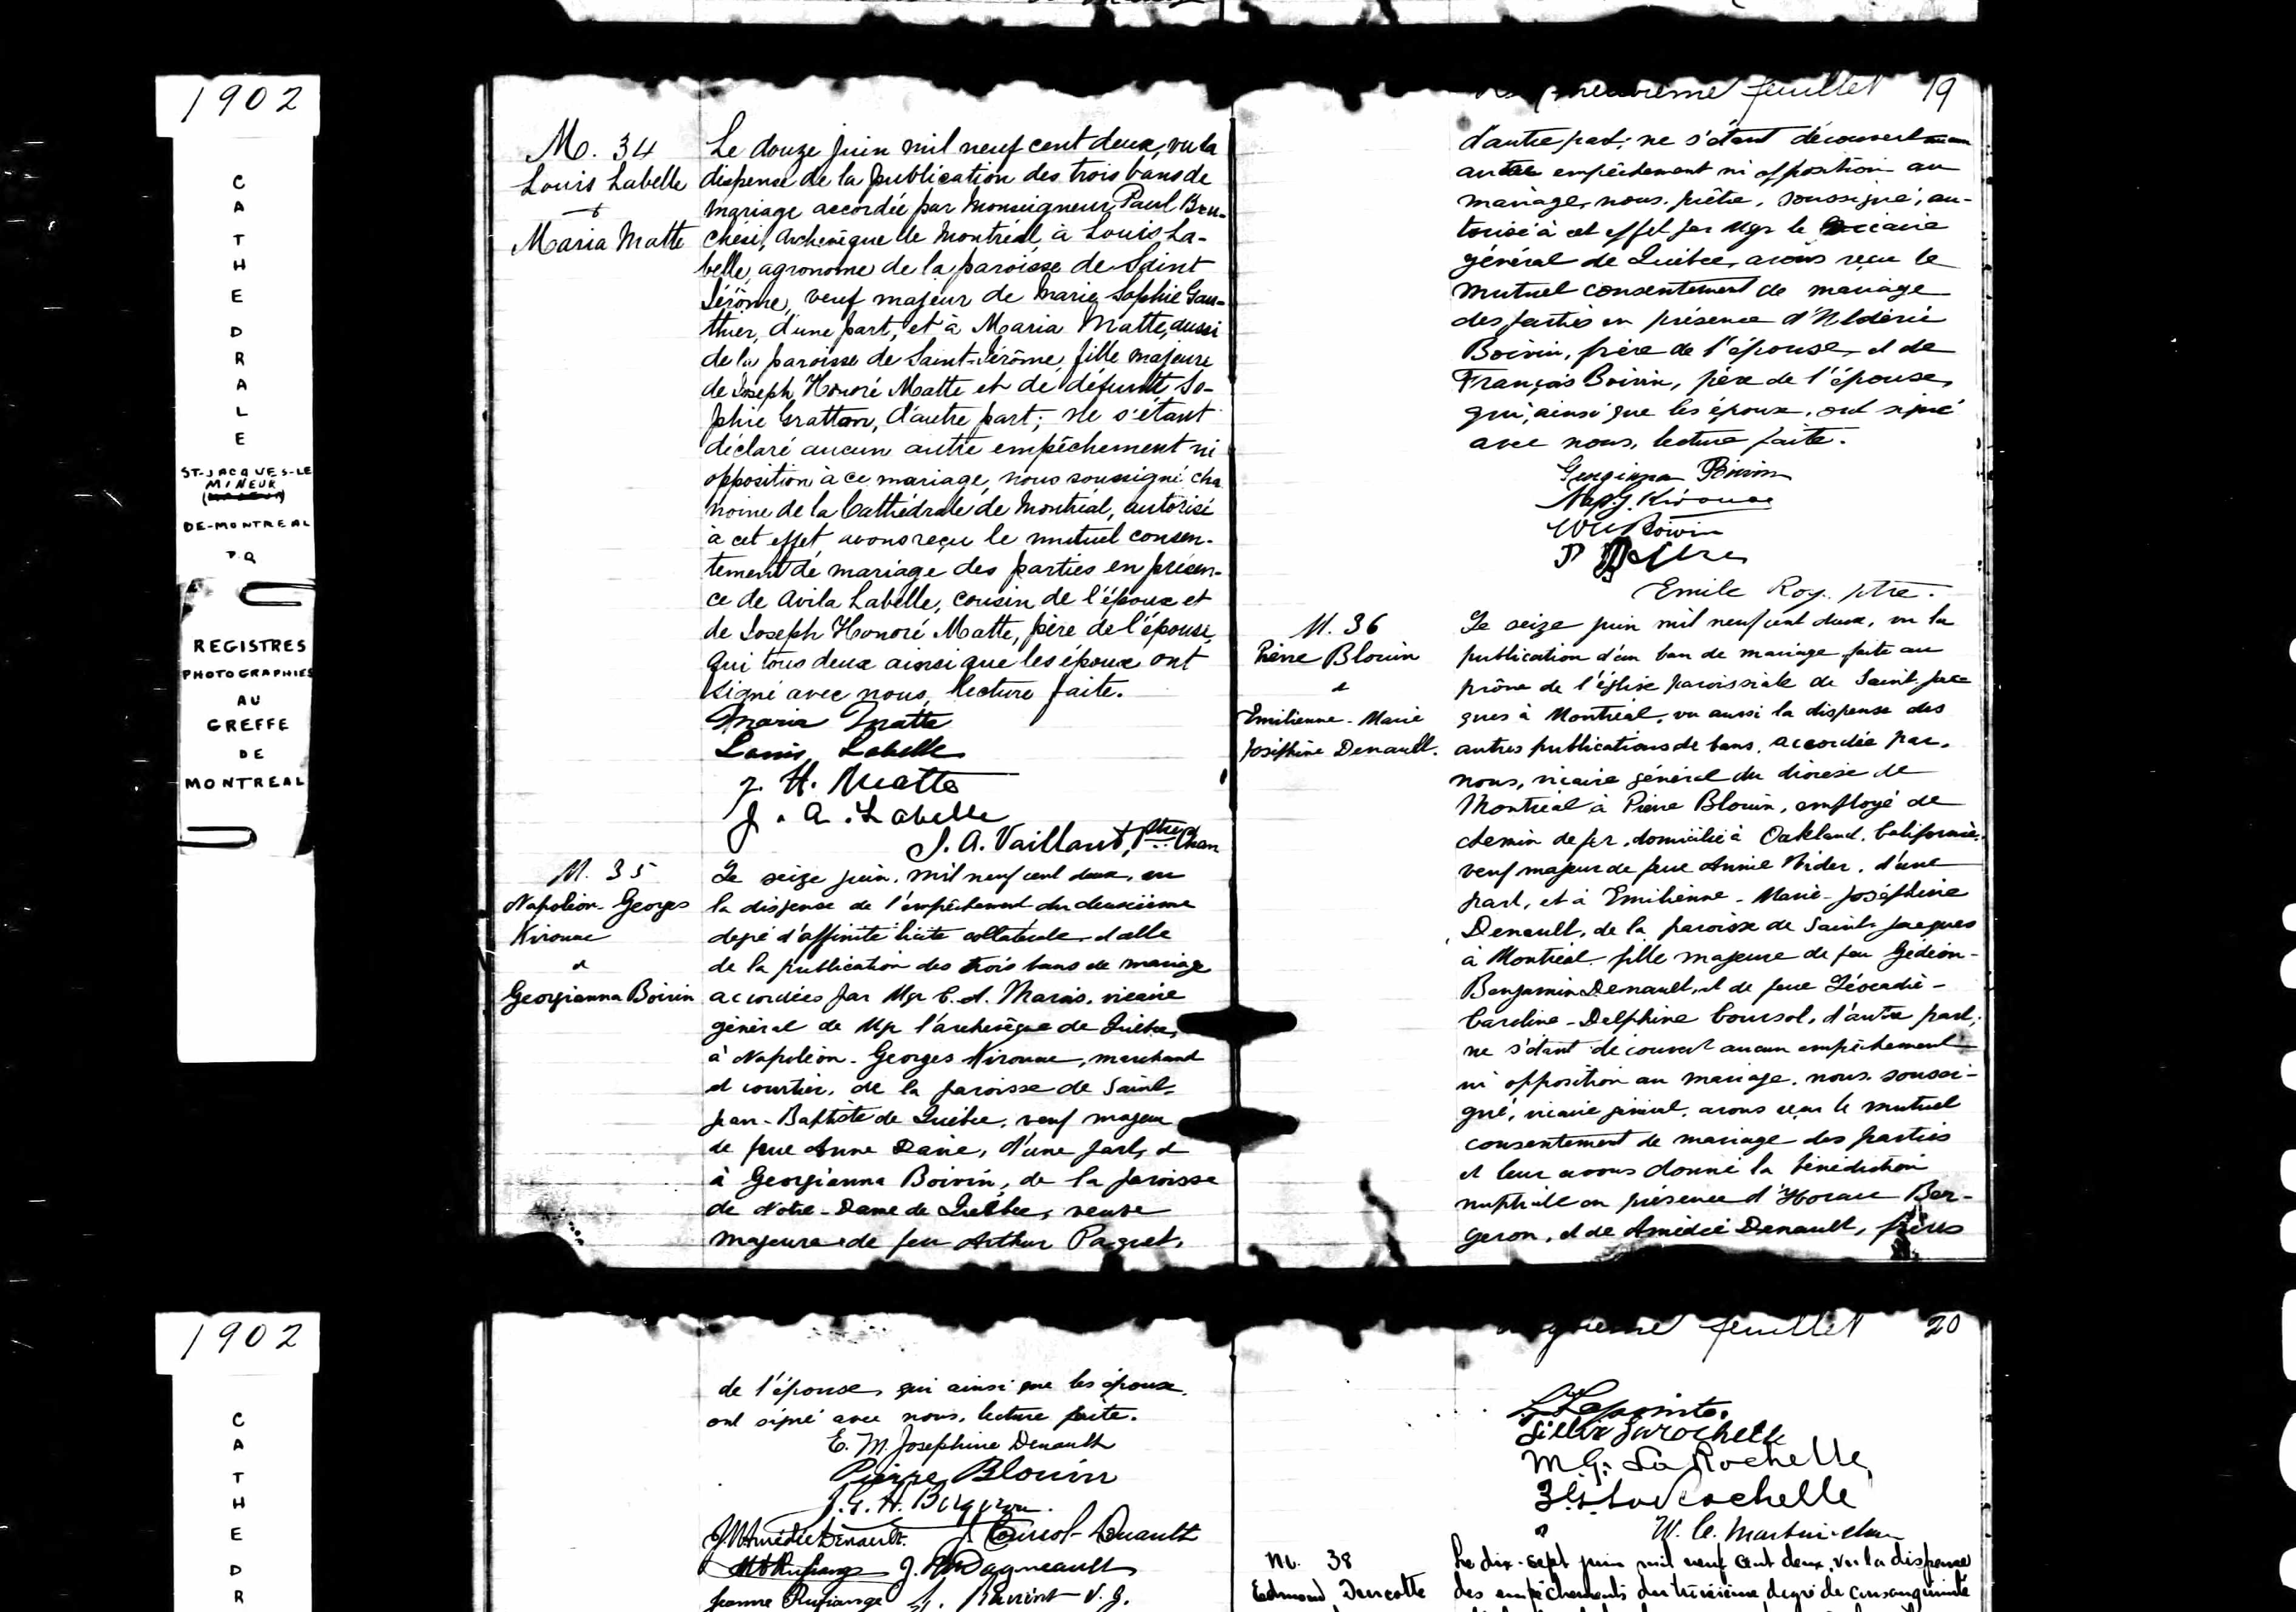 1902
C
A
T
H
E
D
R
A
L
E
ST-JACQUES-LE
MINEUR
DE-MONTREAL
P.Q
REGISTRES
PHOTOGRAPHIES
AU
GREFFE
DE
MONTREAL
M. 34
Louis Labelle
&
Maria Matte
Le douze juin mil neuf cent deux, vu la
dispense de la publication des trois bans de
mariage accordée par Monseigneur Paul Bru-
chési, Archevêque de Montréal, à Louis La-
belle, agronome de la paroisse de Saint
Jérôme, veuf majeur de Marie Sophie Gau-
thier, d'une part, et à Maria Matte, aussi
de la paroisse de Saint-Jérôme, fille majeure
de Joseph Honoré Matte et de défunte So-
phie Gratton, d'autre part; ne s'étant
déclaré aucun autre empêchement ni
opposition à ce mariage, nous soussigné cha
noine de la Cathédrale de Montréal, autorisé
à cet effet avons reçu le mutuel consen-
tement de mariage des parties en présen-
ce de Avila Labelle, cousin de l'époux et
de Joseph Honoré Matte, père de l'épouse,
qui tous deux ainsi que les époux ont
signé avec nous, lecture faite.
Maria Matte
Louis Labelle
J. H. Matte
J. A. Labelle
J. A. Vaillant, Ptre Chan
M. 35
Napoléon-Georges
Kirouac
&
Georgianna Boivin
Le seize juin, mil neuf cent deux, vu
la dispense de l'empêchement du deuxième
degré d'affinité licite collatérale, et celle
de la publication des trois bans de mariage
accordées par Mgr C. A. Marois, vicaire
général de Mgr l'archevêque de Québec,
à Napoléon-Georges Kirouac, marchand
et courtier, de la paroisse de Saint-
Jean-Baptiste de Québec, veuf majeur
de feue Anne Darie, d'une part, et
à Georgianna Boivin, de la paroisse
de Notre-Dame de Québec, veuve
majeure de feu Arthur Paquet,
feuillet 19
d'autre part; ne s'étant découvert aucun
autre empêchement ni opposition au
mariage, nous, prêtre, soussigné, au-
torisé à cet effet par Mgr le vicaire
général de Québec, avons reçu le
mutuel consentement de mariage
des parties en présence d'Ulderic
Boivin, frère de l'épouse, et de
François Boivin, père de l'épouse,
qui, ainsi que les époux, ont signé
avec nous, lecture faite.
Georgianna Boivin
Nap G. Kirouac
Boivin
Emile Roy ptre.
M. 36
Pierre Blouin
&
Emilienne-Marie
Joséphine Denault.
Le seize juin mil neuf cent deux, vu la
publication d'un ban de mariage faite au
prône de l'église paroissiale de Saint-Jac
ques à Montréal, vu aussi la dispense des
autres publications de bans, accordée par,
nous, vicaire général du diocèse de
Montréal à Pierre Blouin, employé de
chemin de fer, domicilié à Oakland, Californie,
veuf majeur de feue Annie Rider, d'une
part, et à Emilienne-Marie-Joséphine
Denault, de la paroisse de Saint-Jacques
à Montréal fille majeure de feu Gédéon-
Benjamin Denault, et de feue Léocadie-
Caroline-Delphine Coursol, d'autre part;
ne s'étant découvert aucun empêchement
ni opposition au mariage, nous, soussi-
gné, vicaire général, avons reçu le mutuel
consentement de mariage des parties
et leur avons donné la bénédiction
nuptiale en présence d'Horace Ber-
geron, et de Amédée Denault, frères
1902
C
A
T
H
E
D
R
de l'épouse, qui ainsi que les époux,
ont signé avec nous, lecture faite.
E. M. Josephine Denault
Pierre Blouin
J. G. H. Bergeron.
J. Amédée Denault. J. Coursol-Denault
J. M. Dagneault
Jeanne Rufiange
feuillet 20
Lapointe
Larochelle
M. G. LaRochelle
LaRochelle
W. C. Martin
M. 38
Edmond Turcotte
Le dix-sept juin mil neuf cent deux, vu la dispense
des empêchements du troisième degré de consanguinité